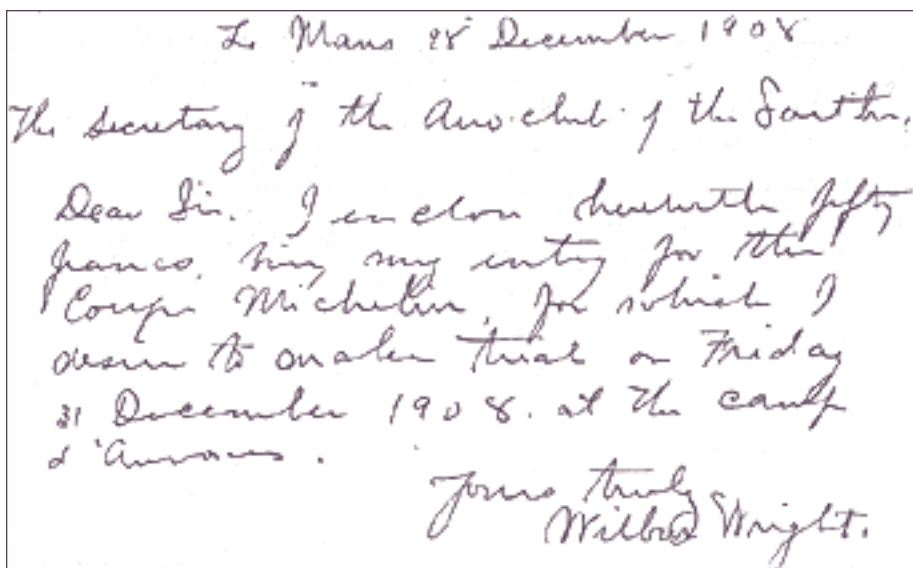 Le Mans 28 December 1908
The Secretary of the Aero-club of the Sarthe.
Dear Sir. I enclose herewith fifty
francs, being my entry for the
Coupe Michelin, for which I
desire to make trial on Friday
31 December 1908. at the camp
d'Auvours.
Yours truly
Wilbur Wright.